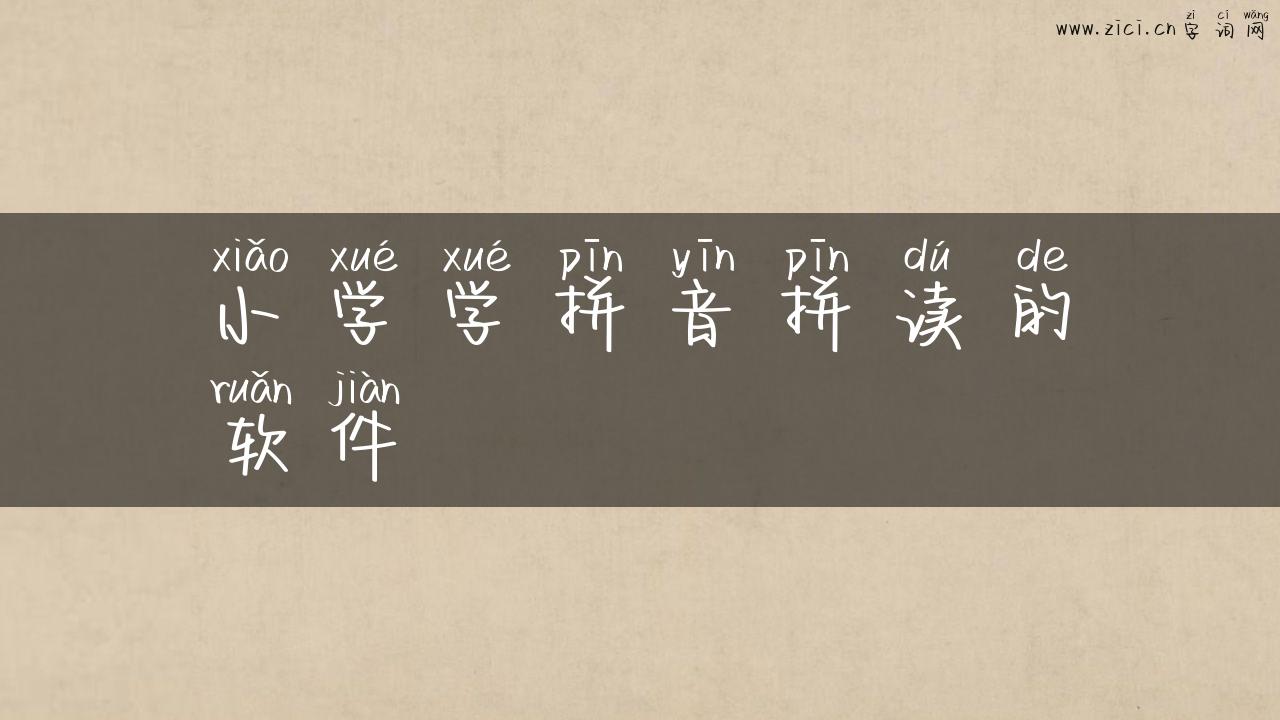 zì cí wǎng
www.zici.cn 字词网
xiǎo xué xué pīn yīn pīn dú de
小学学拼音拼读的
ruǎn jiàn
软件